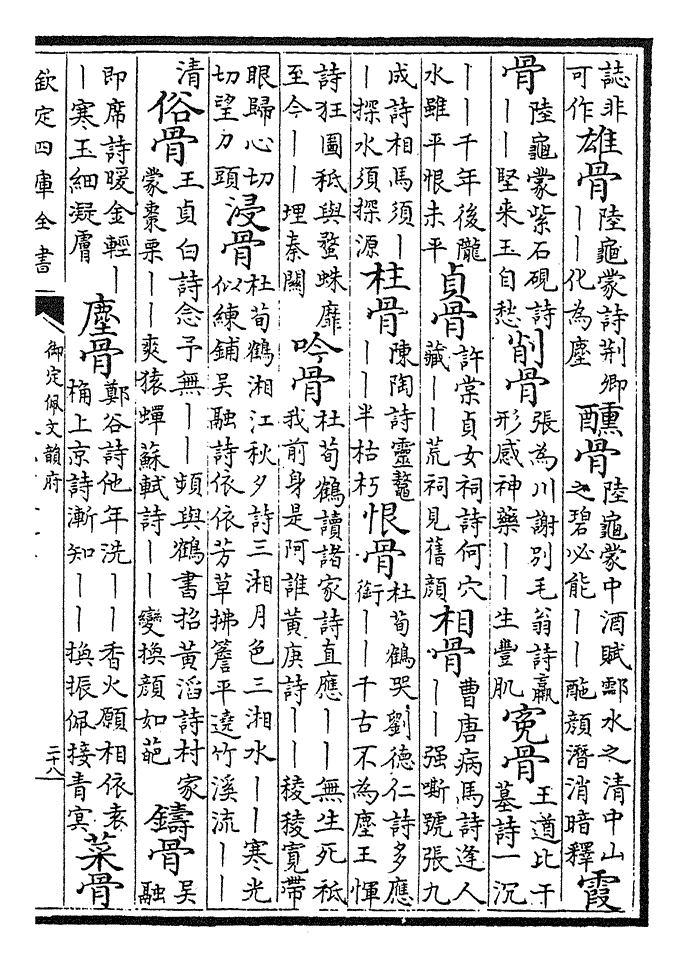 誌非可作雄骨陸龜蒙詩荆卿丨丨化為塵醺骨陸龜蒙中酒賦酃水之清中山之碧必能丨丨酡顔潛消暗釋霞
骨陸龜蒙紫石硯詩丨丨堅来玉自愁削骨張為川謝别毛翁詩羸形感神藥丨丨生豐肌寃骨王遒比干墓詩一沉
丨丨千年後隴水雖平恨未平貞骨許棠貞女祠詩何穴藏丨丨荒祠見舊顔相骨曹唐病馬詩逢人丨丨强嘶號張九
成詩相馬須丨丨探水須探源柱骨陳陶詩靈鼇丨丨半枯朽恨骨杜荀鶴哭劉德仁詩多應銜丨丨千古不為塵王惲
詩狂圖秪與蝥蛛靡至今丨丨埋秦關吟骨杜荀鶴讀諸家詩直應丨丨無生死秪我前身是阿誰黄庚詩丨丨稜稜寛帶
眼歸心切切望刀頭浸骨杜荀鶴湘江秋夕詩三湘月色三湘水丨丨寒光似練鋪吴融詩依依芳草拂簷平遶竹溪流丨丨
清俗骨王貞白詩念予無丨丨頻與鶴書招黄滔詩村家蒙棗栗丨丨爽猿蟬蘇軾詩丨丨變換顔如葩鑄骨吴融
即席詩暖金輕丨丨寒玉細凝膚塵骨鄭谷詩他年洗丨丨香火願相依袁桷上京詩漸知丨丨換振佩接青冥菜骨
欽定四庫全書
御定佩文韻府
二十八